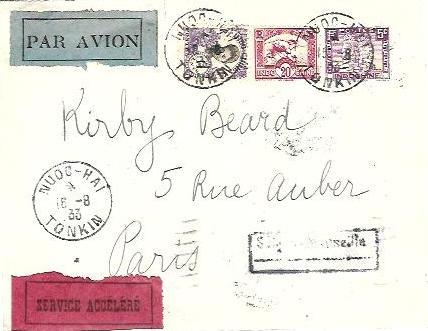 PAR AVION
NUOC-HAI
TONKIN
INDO 20
NUOC-HAI
8
TONKIN
5c
INDOCHINE
Kirby Beard
5 Rue Auber
Paris
NUOC-HAI
16-8
33
TONKIN
Marseille
SERVICE ACCÉLÉRÉ